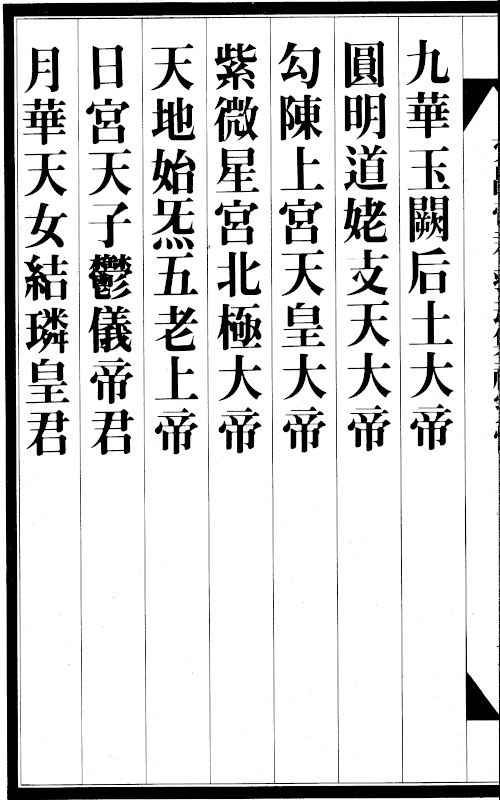 九華玉闕后土大帝
圓明道姥支天大帝
勾陳上宮天皇大帝
紫微星宮北極大帝
天地始炁五老上帝
日宮天子鬱儀帝君
月華天女結璘皇君